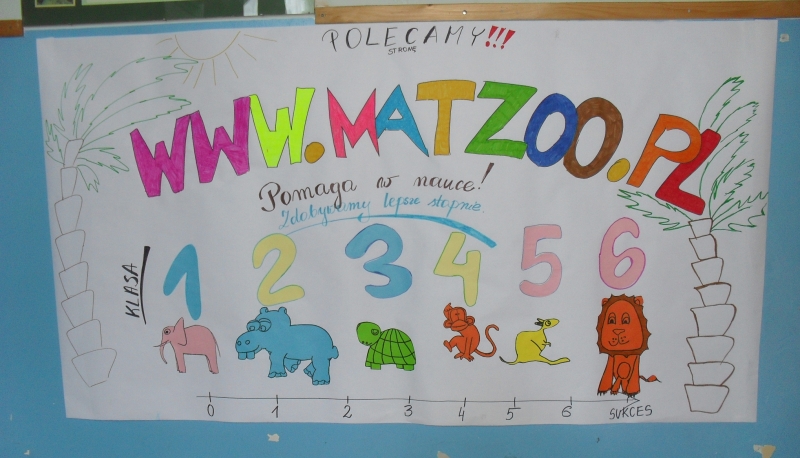 POLECAMY!!!
STRONĘ
WWW.MATZOO.PL
Pomaga w nauce!
Zdobywamy lepsze stopnie.
KLASA 1 2 3 4 5 6
0 1 2 3 4 5 6 SUKCES